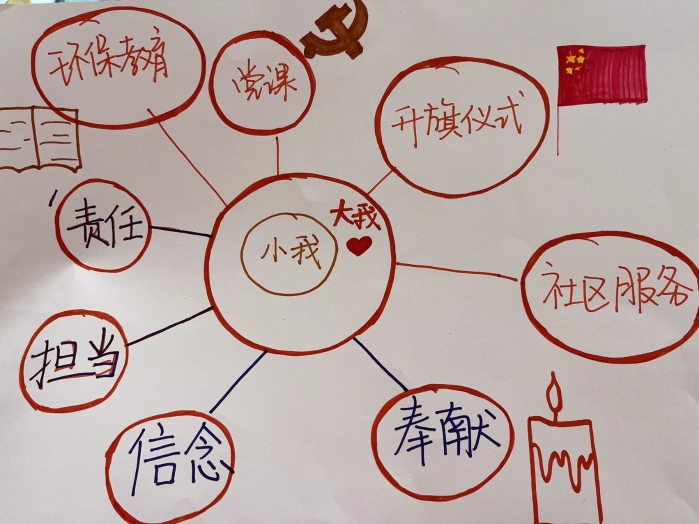 环保教育
党课
升旗仪式
责任
大我
小我
社区服务
担当
信念
奉献